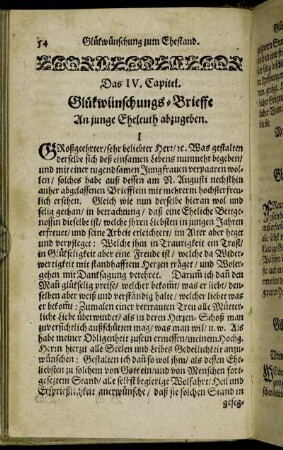 54 Glükwünschung zum Ehestand.
Das IV. Capitel.
Glükwünschungs-Brieffe
An junge Eheleuth abzugeben.
I
GRoßgeehrter/sehr beliebter Herr/ꝛc. Was gestalten
derselbe sich deß einsamen Lebens nunmehr begeben/
und mit einer tugendsamen Jungfrauen verpaaren wol-
len/ solches habe auß dessen am N. Augusti nechsthin
anher abgelassenen Briefflein mit mehrerm höchsterfreu-
lich ersehen. Gleich wie nun derselbe hieran wol und
selig gethan/ in betrachtung/ daß eine Eheliche Bettge-
nossin dieselbe ist/ welche jhren Liebsten in jungen Jahren
erfreuet/ und seine Arbeit erleichtert/ im Alter aber heget
und verpfleget: Welche ihm in Traurigkeit ein Trost/
in Glükseligkeit aber eine Freude ist/ welche da Wider-
wertigkeit mit standhafftem Herzen träget/ und Woler-
gehen mit Danksagung verehret. Darum ich dan den
Man glükselig preise/ welcher bekomt/ was er liebt/ den-
selben aber weiß und verständig halte/ welcher liebet was
er bekomt: Zumalen einer vertrauten Treu alle Mütter-
liche Liebe überwindet/ als in deren Herzen-Schoß man
zuversichlich außschütten mag/ was man wil/ u. w. Als
habe meiner Obligenheit zu seyn ermessen/ meinem Hochg.
Herrn hierzu alle Seelen und leibes Gedeilichkeit anzu-
wünschen: Gestalten ich dan so wol ihm/ als dessen Ehe-
liebsten zu solchem von Gott ein/ und von Menschen fort-
gesezetem Stand/ alle selbst begierige Wolfahrt/ Heil und
Ersprießlichkeit anerwünsche/ daß sie solchen Stand in
geseg-